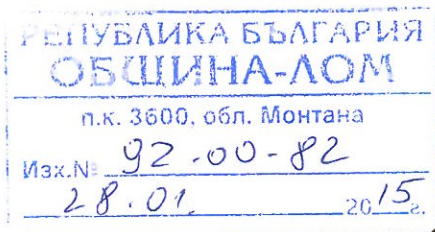 РЕПУБЛИКА БЪЛГАРИЯ
ОБЩИНА-ЛОМ
п.к. 3600, обл. Монтана
Изх.№ 92-00-82
28.01. 2015г.